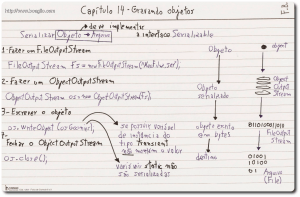 http://www.
Capítulo 14 - Gravando objetos
deve implementar
Serializar Objeto → Arquivo a interface Serializable
1 - Fazer um FileOutputStream
FileOutputStream fs = new FileOutputStream("MeuFile.ser");
2 - Fazer um ObjectOutputStream
ObjectOutputStream os = new ObjectOutputStream(fs);
3 - Escrever o objeto
os.writeObject(
Fechar o ObjectOutputStream
os.close();
se possuir variável
de instância do
tipo transient
não mantém o valor
variáveis static não
são serializadas
Objeto
objeto
serializado
objeto escrito
em bytes
destino
object
Object
Output
Stream
011010010110
FileOutput
Stream
01001
10110
01
Arquivo
(File)